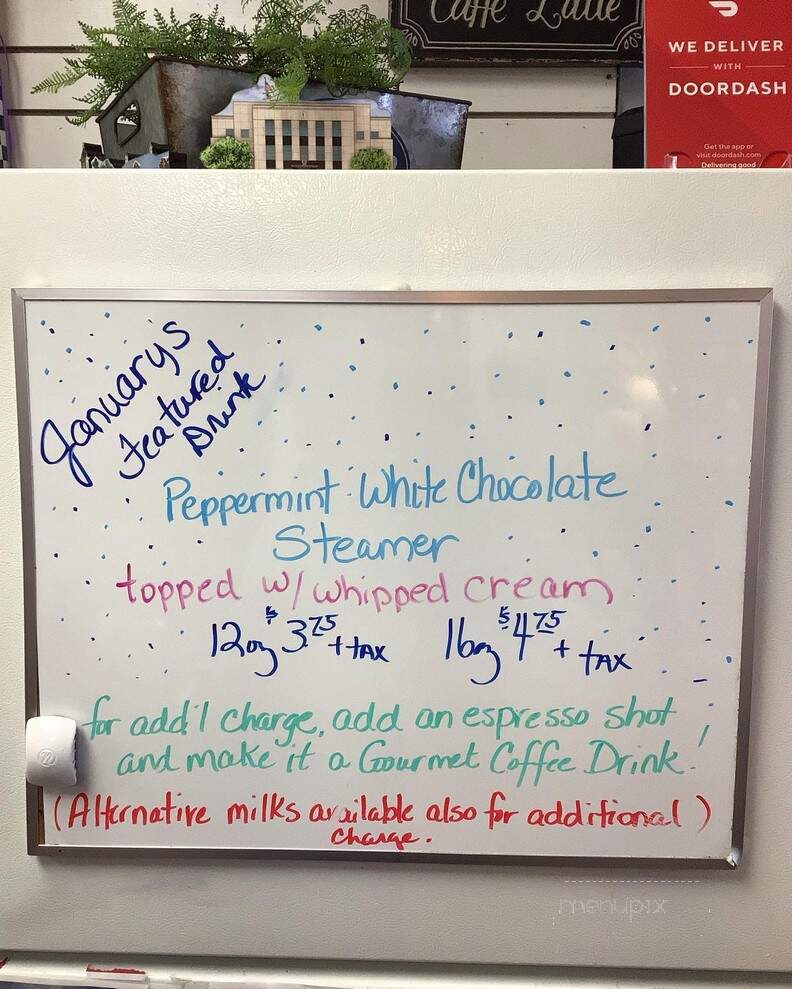 Caffe Latte
WE DELIVER
WITH
DOORDASH
Get the app or
visit doordash.com
Delivering good
January's
Featured
Drink
Peppermint White Chocolate
Steamer
topped w/ whipped cream
12oz $3.75 + tax 16oz $4.75 + tax
for add'l charge, add an espresso shot
and make it a Gourmet Coffee Drink!
(Alternative milks available also for additional)
charge.
menupix